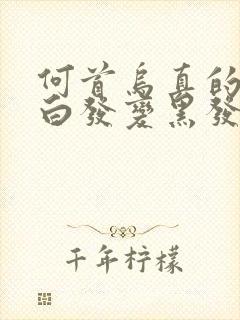 何首烏真的
白發變黑發
千年柠檬